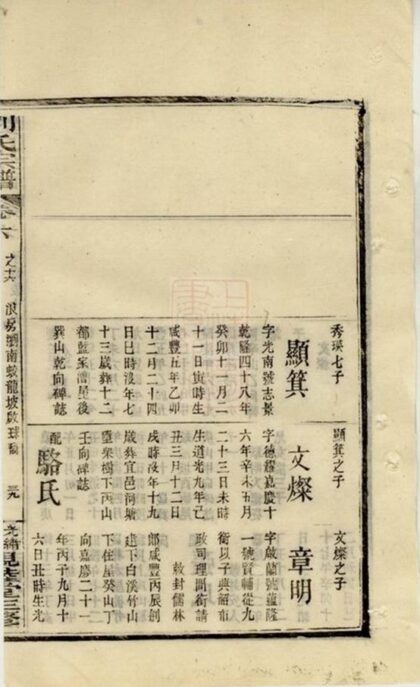 秀瑛七子
顯箕
字光南號志景
乾隆四十八年
癸卯十一月二
十一日寅時生
咸豐五年乙卯
十二月二十四
日巳時沒年七
十三歲葬十二
都藍家漕屋後
巽山乾向碑誌
顯箕之子
文燦
字德耀嘉慶十
六年辛未五月
二十三日未時
生道光九年己
丑三月十二日
戌時沒年十九
歲葬宜邑河塘
壟栗樹下丙山
壬向碑誌
配駱氏
文燦之子
章明
字啟蘭號蘊隆
一號賢輔從九
銜以子典韶布
政司理問銜請
敕封儒林
郎咸豐丙辰創
建下白溪竹山
下住屋癸山丁
向嘉慶二十一
年丙子九月十
六日丑時生光
劉氏宗譜
卷六
之十六
浪房瀏南蛟龍坡啟珠
光緒